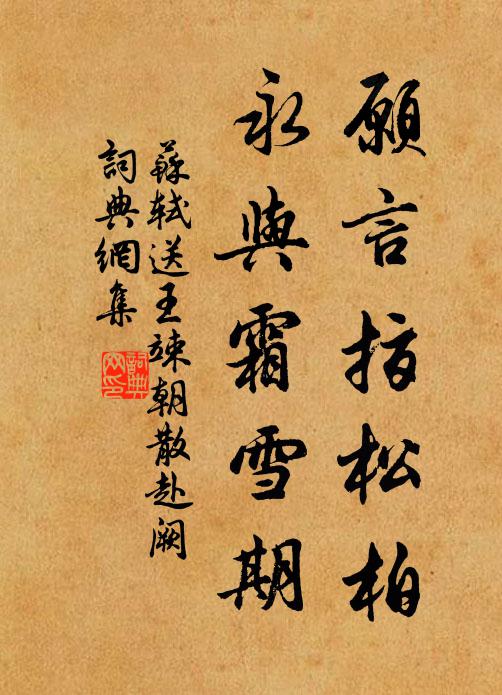 願言指松柏
永與霜雪期
蘇軾送王竦朝散赴闕
詞典網集
詞典網印